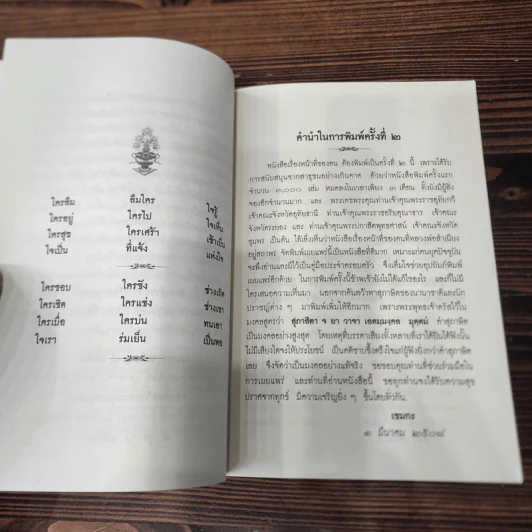 ใครลืม ลืมใคร ใจรู้
ใครอยู่ ใครไป ใจเห็น
ใครสุข ใครเศร้า เช้าเย็น
ใจเป็น ที่แจ้ง แห่งใจ
ใครชอบ ใครชัง ช่างเถิด
ใครเชิด ใครแช่ง ช่างเขา
ใครเบื่อ ใครบ่น ทนเอา
ใจเรา ร่มเย็น เป็นพอ
คำนำในการพิมพ์ครั้งที่ ๒
หนังสือเรื่องหน้าที่ของคน ต้องพิมพ์เป็นครั้งที่ ๒ นี้ เพราะได้รับ
การสนับสนุนจากสาธุชนอย่างเกินคาด ด้วยว่าหนังสือพิมพ์ครั้งแรก
จำนวน ๓,๐๐๐ เล่ม หมดลงในเวลาเพียง ๓ เดือน ทั้งยังมีผู้สั่ง
ของอีกจำนวนมาก และ พระเดชพระคุณท่านเจ้าคุณพระราชอุทัยกวี
เจ้าคณะจังหวัดอุทัยธานี ท่านเจ้าคุณพระราชอริยคุณาธาร เจ้าคณะ
จังหวัดระยอง และ ท่านเจ้าคุณพระ เจ้าคณะจังหวัด
ชุมพร เป็นต้น ได้สั่งว่าหนังสือเรื่องหน้าที่ของคน
อยู่สถาพร จัดพิมพ์เผยแพร่นี้เป็นหนังสือที่ดีมาก เหมาะแก่คนยุคปัจจุบัน
จะพึงอ่านและมีไว้เป็นคู่มือประจำครอบครัว จึงเต็มใจช่วยอุปถัมภ์พิมพ์
เผยแพร่อีกด้วย ในการพิมพ์ครั้งนี้ข้าพเจ้ายังไม่ได้แก้ไขอะไร และก็ไม่มี
ใครเสนอความเห็นมา นอกจากค้นคว้าหาสุภาษิตของนานาชาติและนัก
ปราชญ์ต่าง ๆ มาพิมพ์เพิ่มให้อีกมาก เพราะพระพุทธเจ้าตรัสไว้ใน
มงคลสูตรว่า สุภาสิตา จ ยา วาจา เอตมฺมงฺคล มุตฺตมํ คำสุภาษิต
เป็นมงคลอย่างสูงสุด โดยเหตุที่บรรดาเสียงทั้งหลายที่เราได้ยินได้ฟังนั้น
ไม่มีเสียงใดจะให้ประโยชน์ เป็นคติชาบซึ้งตรึงใจแก่ผู้ฟังยิ่งกว่าคำสุภาษิต
เลย จึงจัดว่าเป็นมงคลอย่างแท้จริง ขอขอบคุณท่านที่ช่วยร่วมมือใน
การเผยแพร่ และท่านที่อ่านหนังสือนี้ ขอทุกท่านจงได้รับความสุข
ปราศจากทุกข์ มีความเจริญยิ่ง ๆ ขึ้นโดยทั่วกัน.
เขมกะ
๑ มีนาคม ๒๕๐๘